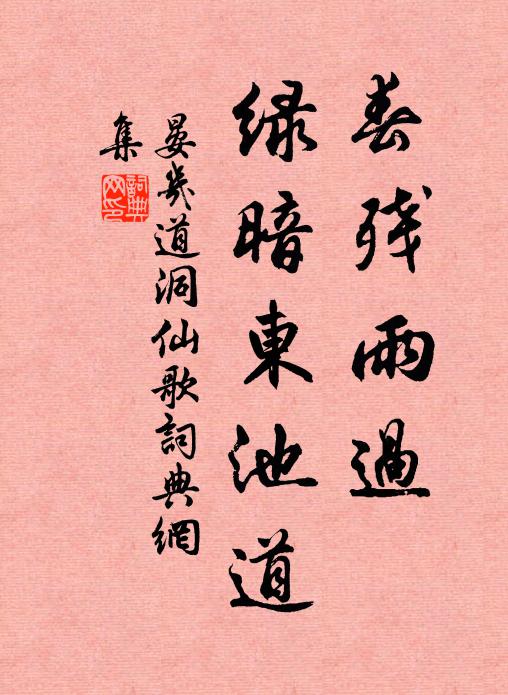 春残雨過
緑暗東池道
晏幾道洞仙歌詞典網
集
詞典网印